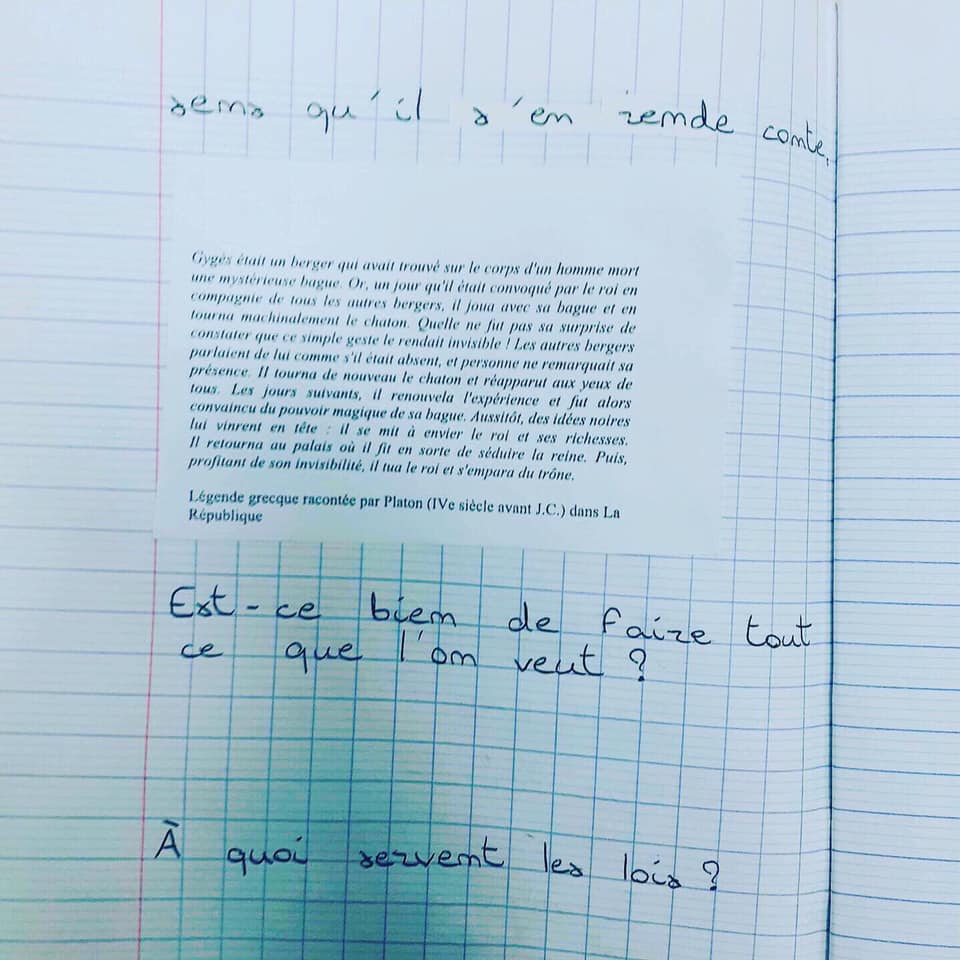 sens qu'il s'en rende comte.
Gygès était un berger qui avait trouvé sur le corps d'un homme mort
une mystérieuse bague. Or, un jour qu'il était convoqué par le roi en
compagnie de tous les autres bergers, il joua avec sa bague et en
tourna machinalement le chaton. Quelle ne fut pas sa surprise de
constater que ce simple geste le rendait invisible ! Les autres bergers
parlaient de lui comme s'il était absent, et personne ne remarquait sa
présence. Il tourna de nouveau le chaton et réapparut aux yeux de
tous. Les jours suivants, il renouvela l'expérience et fut alors
convaincu du pouvoir magique de sa bague. Aussitôt, des idées noires
lui vinrent en tête : il se mit à envier le roi et ses richesses.
Il retourna au palais où il fit en sorte de séduire la reine. Puis,
profitant de son invisibilité, il tua le roi et s'empara du trône.
Légende grecque racontée par Platon (IVe siècle avant J.C.) dans La
République
Est-ce bien de faire tout
ce que l'on veut ?
À quoi servent les lois ?